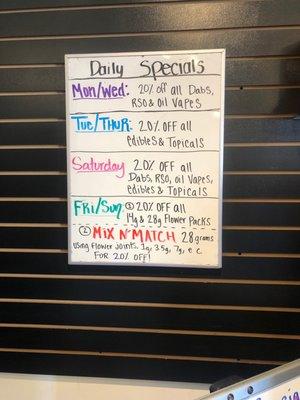 Daily Specials
Mon/Wed: 20% off all Dabs,
RSO & oil Vapes
Tue/THUR: 20% OFF all
edibles & Topicals
Saturday 20% OFF all
Dabs, RSO, oil Vapes,
edibles & Topicals
Fri/Sun: ① 20% OFF all
14g & 28g Flower Packs
② MiX N' MATCH 28 grams
using Flower joints, 1g, 3.5g, 7g, e.c.
FOR 20% OFF!